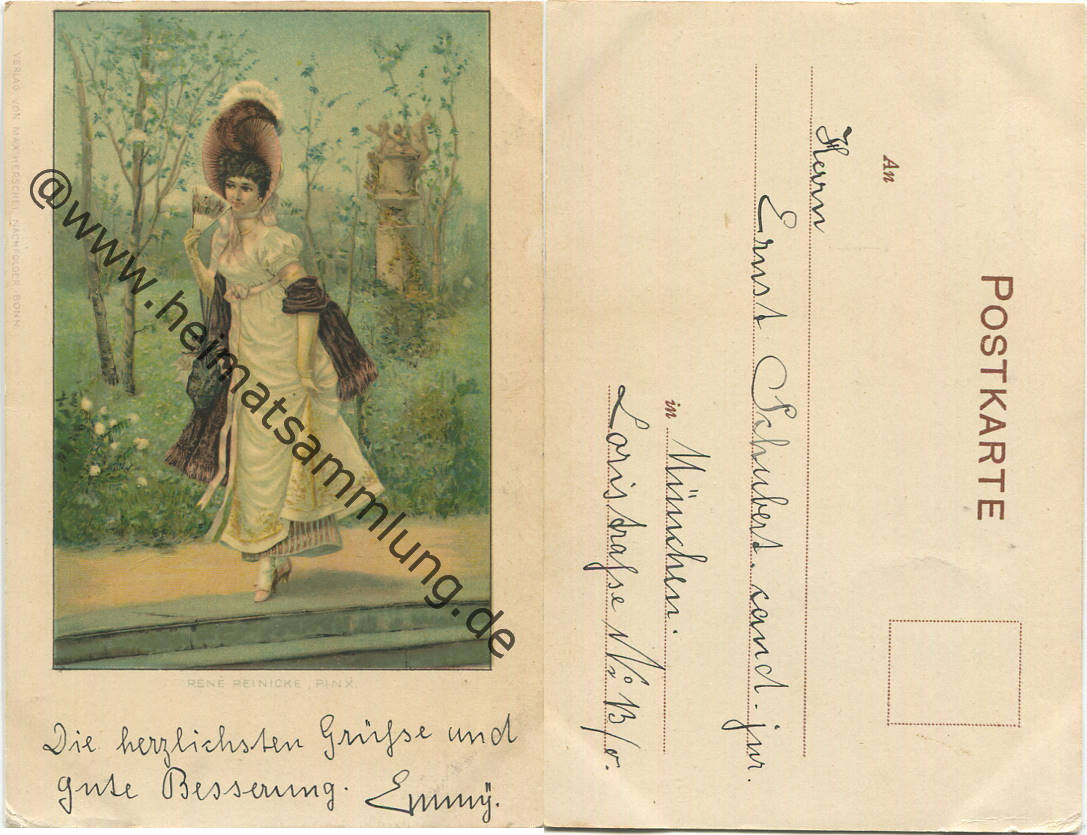 VERLAG VON MAX HERSCHEL NACHFOLGER, BONN.
@www.heimatsammlung.de
RENÉ REINICKE, PINX.
Die herzlichsten Grüsse und
gute Besserung. Emmy.
POSTKARTE
An
Herrn
Ernst Schubert. cand. jur.
in München.
Loristraße No 13/o.